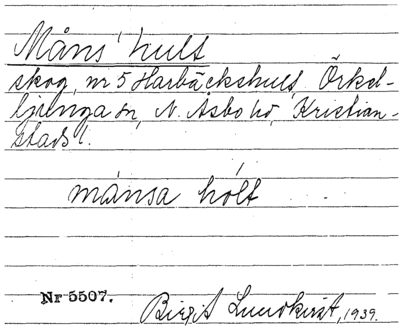 Måns' hult
skog, nr 5 Harbäckshult, Örkel-
ljunga sn, N. Åsbo hd, Kristian-
stads l.
månsa hólt
Nr 5507.
Birgit Lundkvist, 1939.